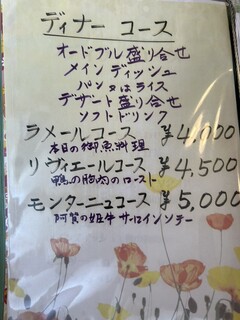 ディナー コース
オードブル盛り合せ
メインディッシュ
パン又はライス
デザート盛り合せ
ソフトドリンク
ラメールコース ¥4,000
本日の御魚料理
リヴィエールコース ¥4,500
鴨の胸肉のロースト
モンターニュコース ¥5,000
阿賀の姫牛サーロインソテー